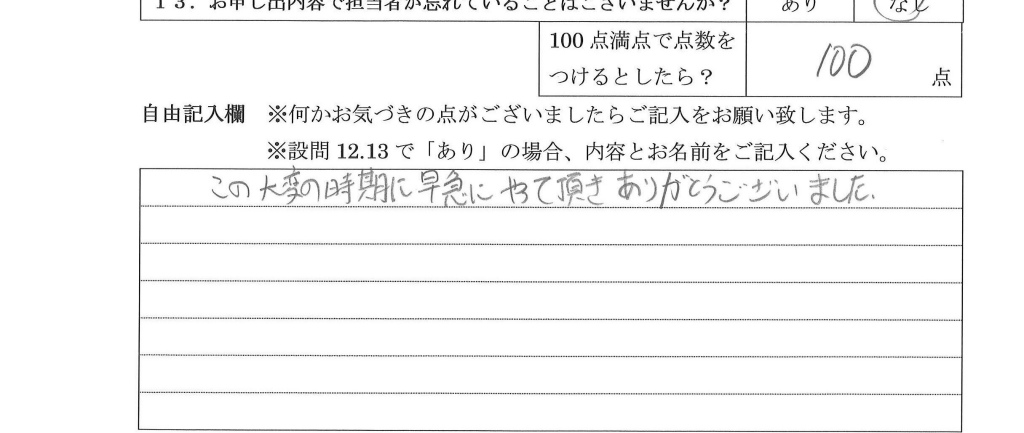 １３．お申し出内容で担当者が忘れていることはございませんか？ あり なし
100 点満点で点数を
つけるとしたら？ 100 点
自由記入欄 ※何かお気づきの点がございましたらご記入をお願い致します。
※設問 12.13 で「あり」の場合、内容とお名前をご記入ください。
この大変の時期に早急にやって頂きありがとうございました.